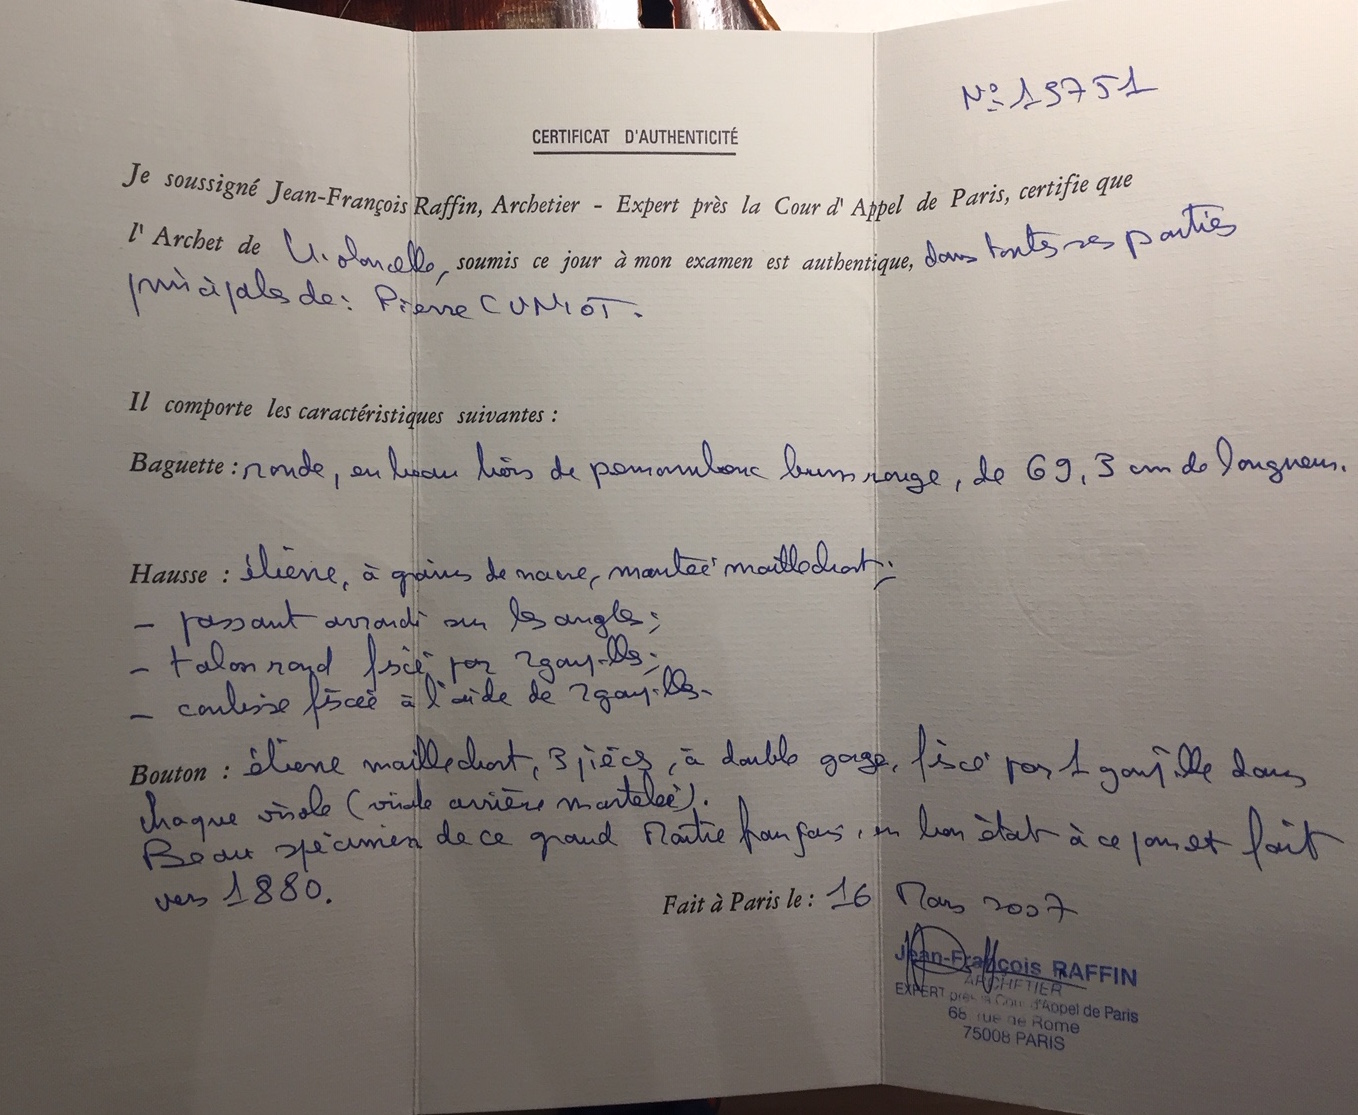 Nº: 19751
CERTIFICAT D'AUTHENTICITÉ
Je soussigné Jean-François Raffin, Archetier - Expert près la Cour d'Appel de Paris, certifie que
l'Archet de Violoncelle, soumis ce jour à mon examen est authentique, dans toutes ses parties
principales de : Pierre CUNIOT.
Il comporte les caractéristiques suivantes :
Baguette : ronde, en beau bois de pernambouc brun rouge, de 69,3 cm de longueur.
Hausse : ébène, à grains de nacre, montée maillechort ;
- passant arrondi sur les angles ;
- talon rond fixé par 2 goupilles ;
- coulisse fixée à l'aide de 2 goupilles.
Bouton : ébène maillechort, 3 pièces, à double gorge, fixé par 1 goupille dans
chaque virole (virole arrière martelée).
Beau spécimen de ce grand Maître français, en bon état à ce jour et fait
vers 1880.
Fait à Paris le : 16 Mars 2007
Jean-François RAFFIN
ARCHETIER
EXPERT près la Cour d'Appel de Paris
68 rue de Rome
75008 PARIS